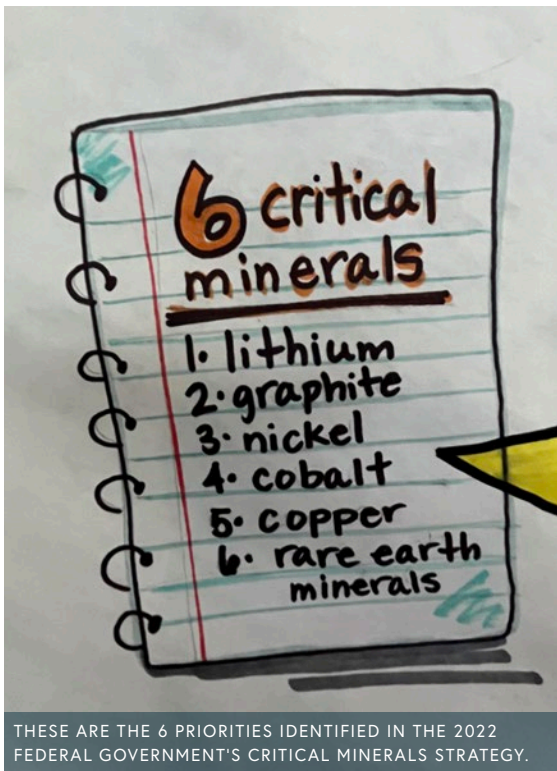 6 critical
minerals
1. lithium
2. graphite
3. nickel
4. cobalt
5. copper
6. rare earth
minerals
THESE ARE THE 6 PRIORITIES IDENTIFIED IN THE 2022
FEDERAL GOVERNMENT'S CRITICAL MINERALS STRATEGY.